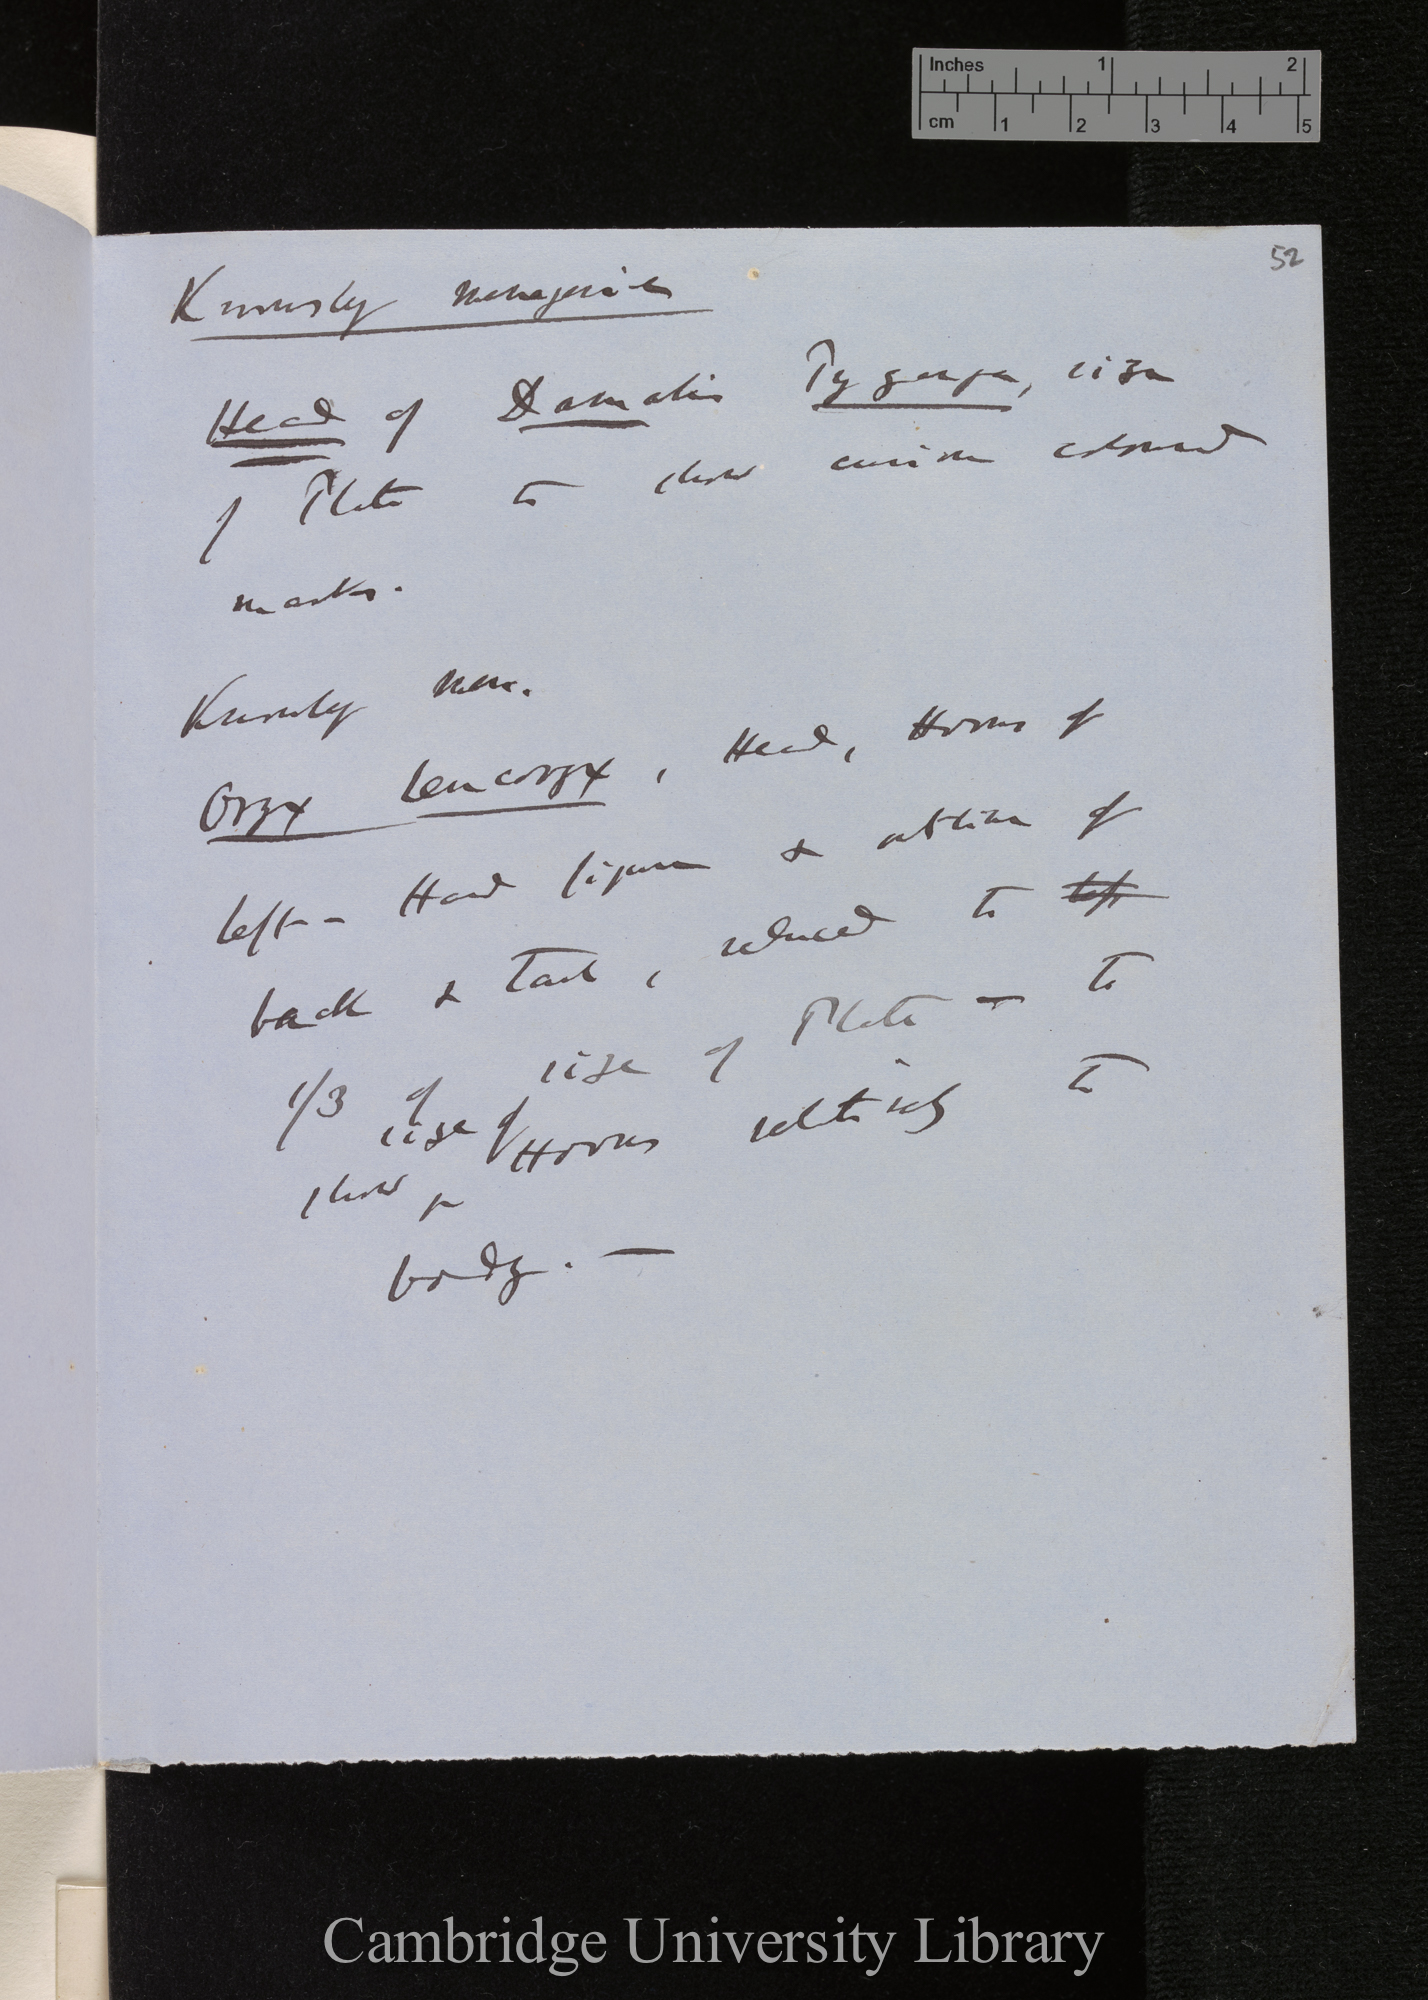 Inches 1 2
cm 1 2 3 4 5
52
Knowsley menagerie
Head of Damalis Pygarga, size
of Plate to show curious coloured
marks.
Knowsley Men.
Oryx Leucoryx, Head, Horns of
left-Hand figure & outline of
back & Tail, reduced to left
1/3 of size of Plate — to
size of
show Horns relatively to
body. —
Cambridge University Library